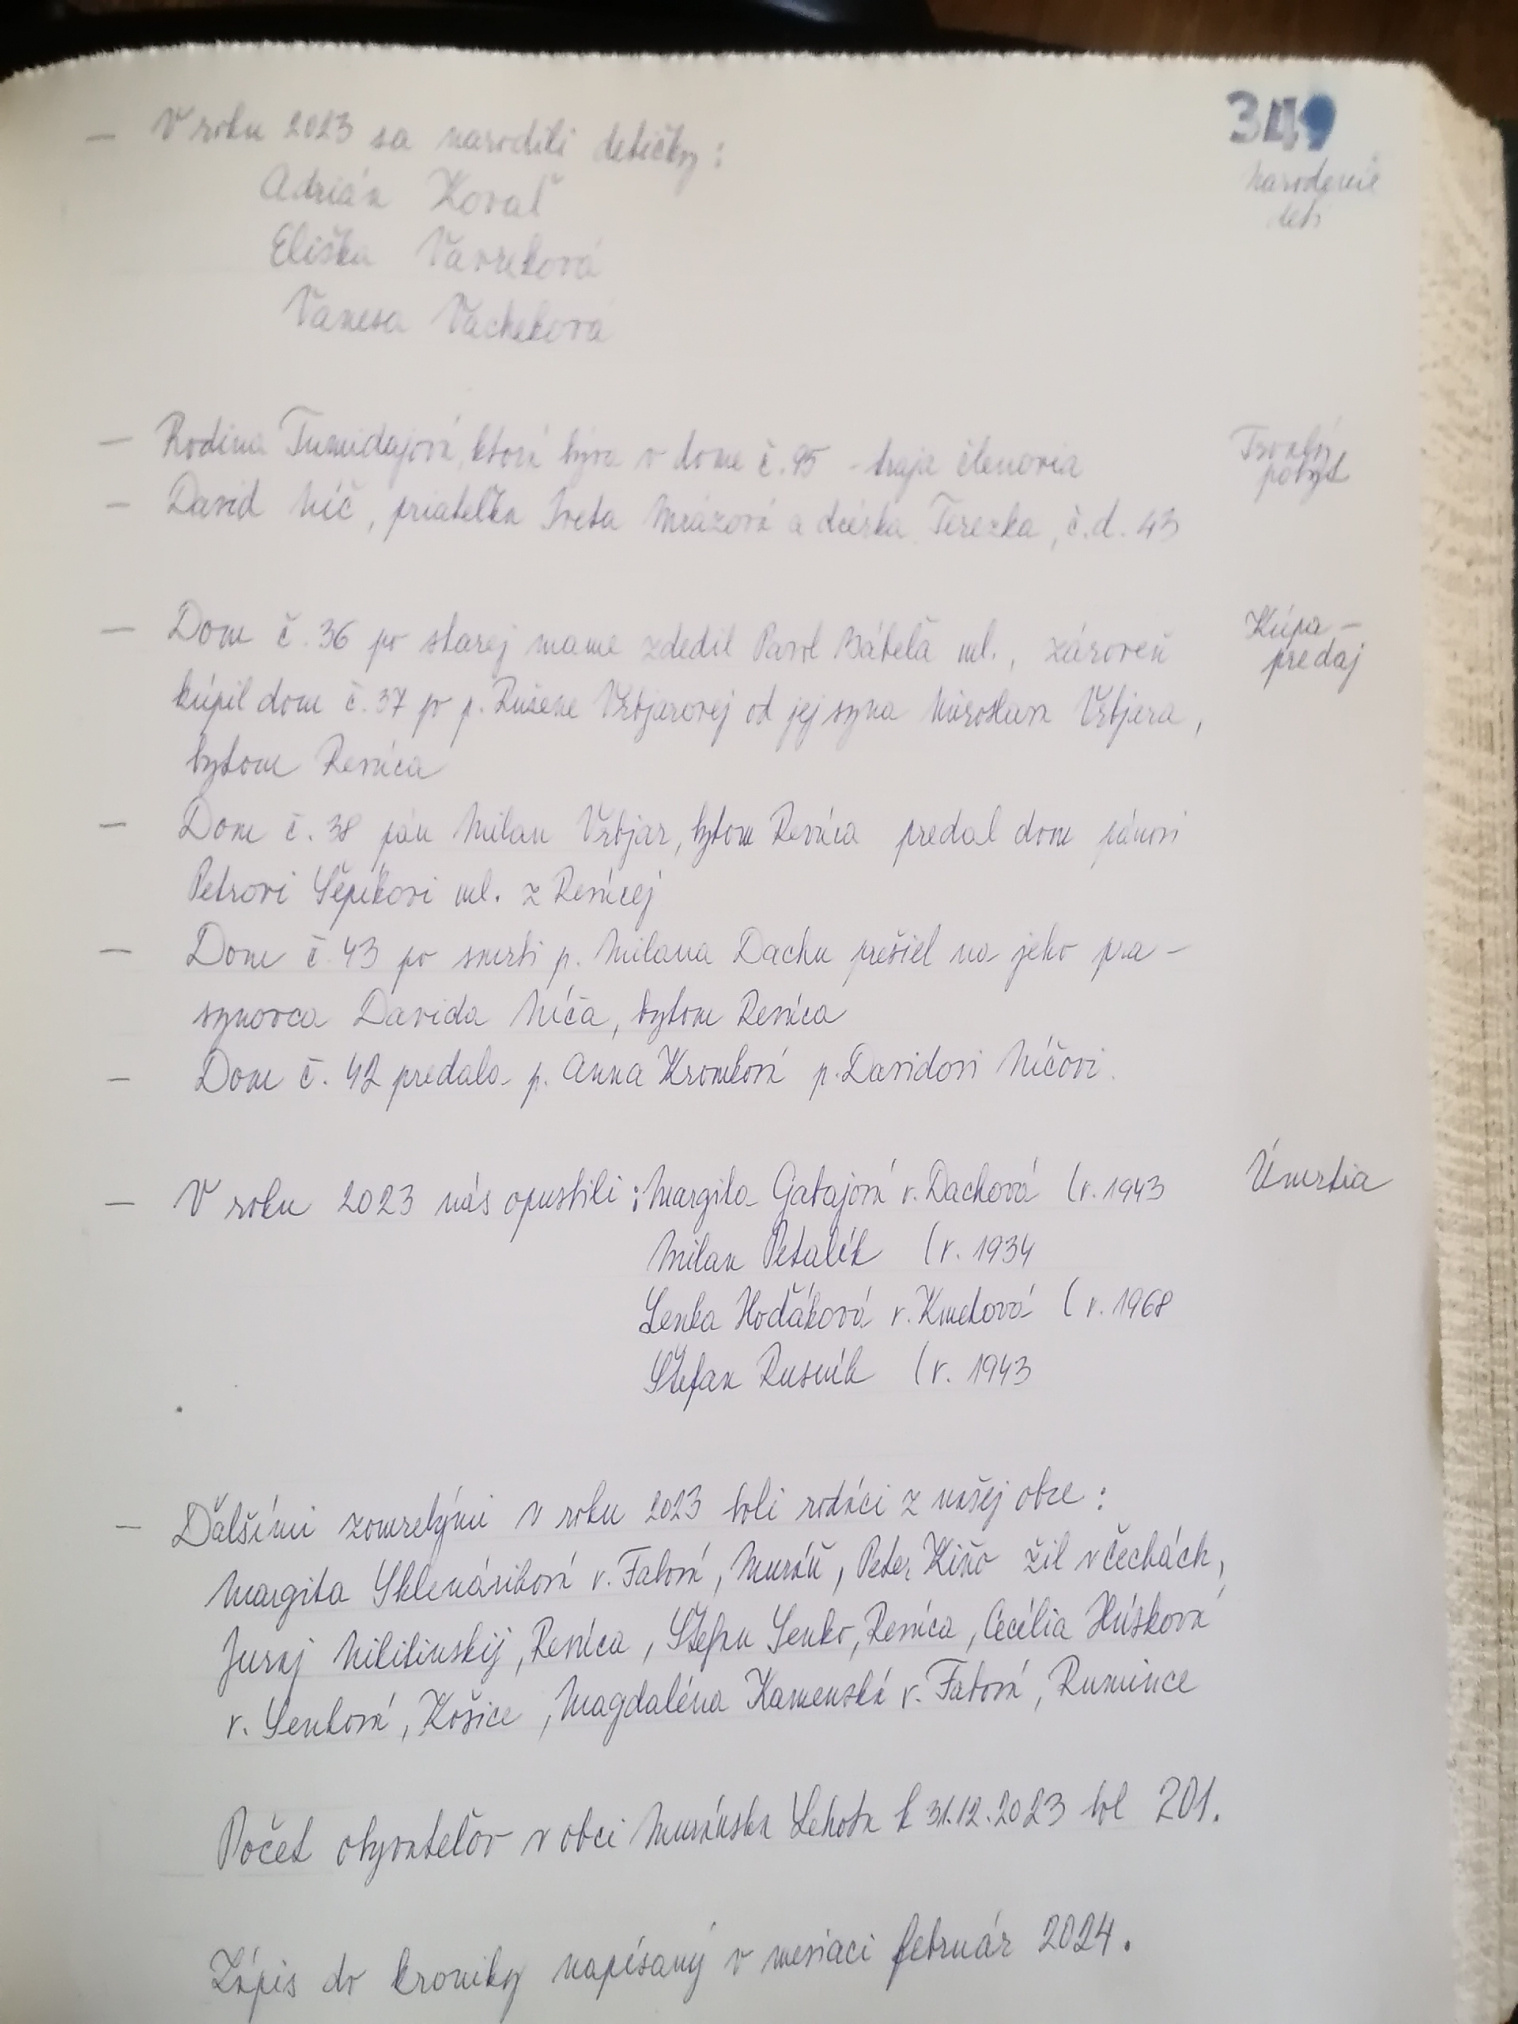 349
— V roku 2023 sa narodili detičky:
narodenie
detí
Adrián Kováč
Eliška Vavreková
Vanesa Vacheková
— Rodina Tumidajová, ktorá býva v dome č. 95 - traja členovia
Trvalý
pobyt
— David Níč, priateľka Iveta Mrázová a dcérka Terezka, č.d. 43
— Dom č. 36 po starej mame zdedil Pavol Bátela ml., zároveň
Kúpa –
predaj
kúpil dom č. 37 po p. Ružene Vrbjarovej od jej syna Miroslava Vrbjara,
bytom Revúca
— Dom č. 38 pán Milan Vrbjar, bytom Revúca predal dom pánovi
Petrovi Štepikovi ml. z Revúcej
— Dom č. 43 po smrti p. Milana Dachu prešiel na jeho pra –
synovca Davida Níča, bytom Revúca
— Dom č. 42 predala p. Anna Kromková p. Davidovi Níčovi.
— V roku 2023 nás opustili: Margita Gabajová r. Dachová (r. 1943
Úmrtia
Milan Petalík (r. 1934
Lenka Hoďáková r. Kmeťová (r. 1968
Štefan Rusník (r. 1943
— Ďalšími zomrelými v roku 2023 boli rodáci z našej obce:
Margita Sklenáriková r. Fabová, Muráň, Peter Kiňo žil v čechách,
Juraj Nikitinskij, Revúca, Štefan Lenko, Revúca, Cecília Húsková
r. Lenková, Košice, Magdaléna Kamenská r. Fabová, Rumince
Počet obyvateľov v obci Muránska Lehota k 31.12.2023 bol 201.
Zápis do kroniky napísaný v mesiaci február 2024.